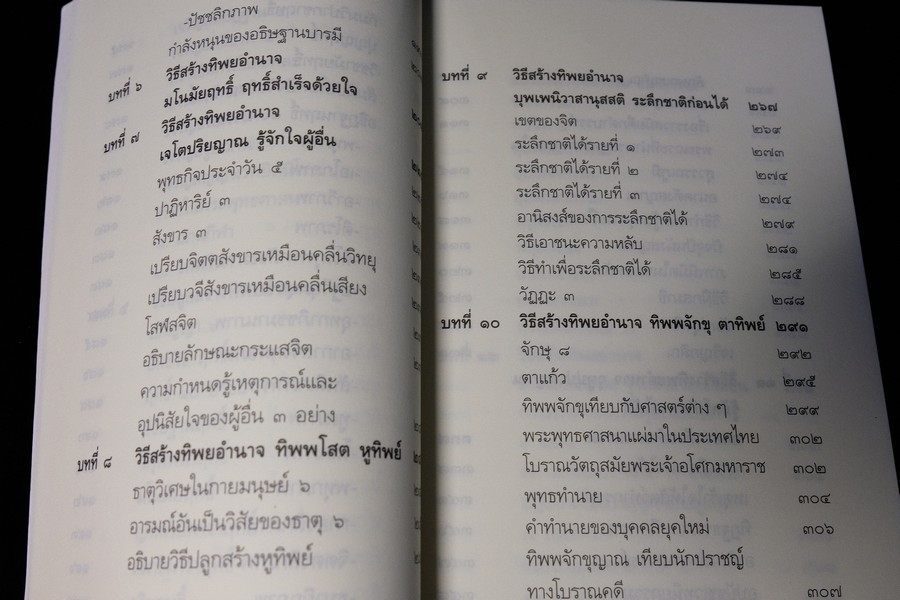 -ปัชชลิกภาพ
กำลังหนุนของอธิษฐานบารมี
บทที่ ๖ วิธีสร้างทิพยอำนาจ
มโนมัยฤทธิ์ ฤทธิ์สำเร็จด้วยใจ
บทที่ ๗ วิธีสร้างทิพยอำนาจ
เจโตปริยญาณ รู้จักใจผู้อื่น
พุทธกิจประจำวัน ๕
ปาฏิหาริย์ ๓
สังขาร ๓
เปรียบจิตตสังขารเหมือนคลื่นวิทยุ
เปรียบวจีสังขารเหมือนคลื่นเสียง
โสฬสจิต
อธิบายลักษณะกระแสจิต
ความกำหนดรู้เหตุการณ์และ
อุปนิสัยใจของผู้อื่น ๓ อย่าง
บทที่ ๘ วิธีสร้างทิพยอำนาจ ทิพพโสต หูทิพย์
ธาตุวิเศษในกายมนุษย์ ๖
อารมณ์อันเป็นวิสัยของธาตุ ๖
อธิบายวิธีปลูกสร้างหูทิพย์
บทที่ ๙ วิธีสร้างทิพยอำนาจ
บุพเพนิวาสานุสสติ ระลึกชาติก่อนได้ ๒๖๗
เขตของจิต ๒๖๙
ระลึกชาติได้รายที่ ๑ ๒๗๓
ระลึกชาติได้รายที่ ๒ ๒๗๔
ระลึกชาติได้รายที่ ๓ ๒๗๔
อานิสงส์ของการระลึกชาติได้ ๒๗๙
วิธีเอาชนะความหลับ ๒๘๑
วิธีทำเพื่อระลึกชาติได้ ๒๘๕
วัฏฏะ ๓ ๒๘๘
บทที่ ๑๐ วิธีสร้างทิพยอำนาจ ทิพพจักขุ ตาทิพย์ ๒๙๑
จักษุ ๘ ๒๙๒
ตาแก้ว ๒๙๕
ทิพพจักขุเทียบกับศาสตร์ต่าง ๆ ๒๙๙
พระพุทธศาสนาแผ่มาในประเทศไทย ๓๐๒
โบราณวัตถุสมัยพระเจ้าอโศกมหาราช ๓๐๒
พุทธทำนาย ๓๐๔
คำทำนายของบุคคลยุคใหม่ ๓๐๖
ทิพพจักขุญาณ เทียบนักปราชญ์
ทางโบราณคดี ๓๐๗